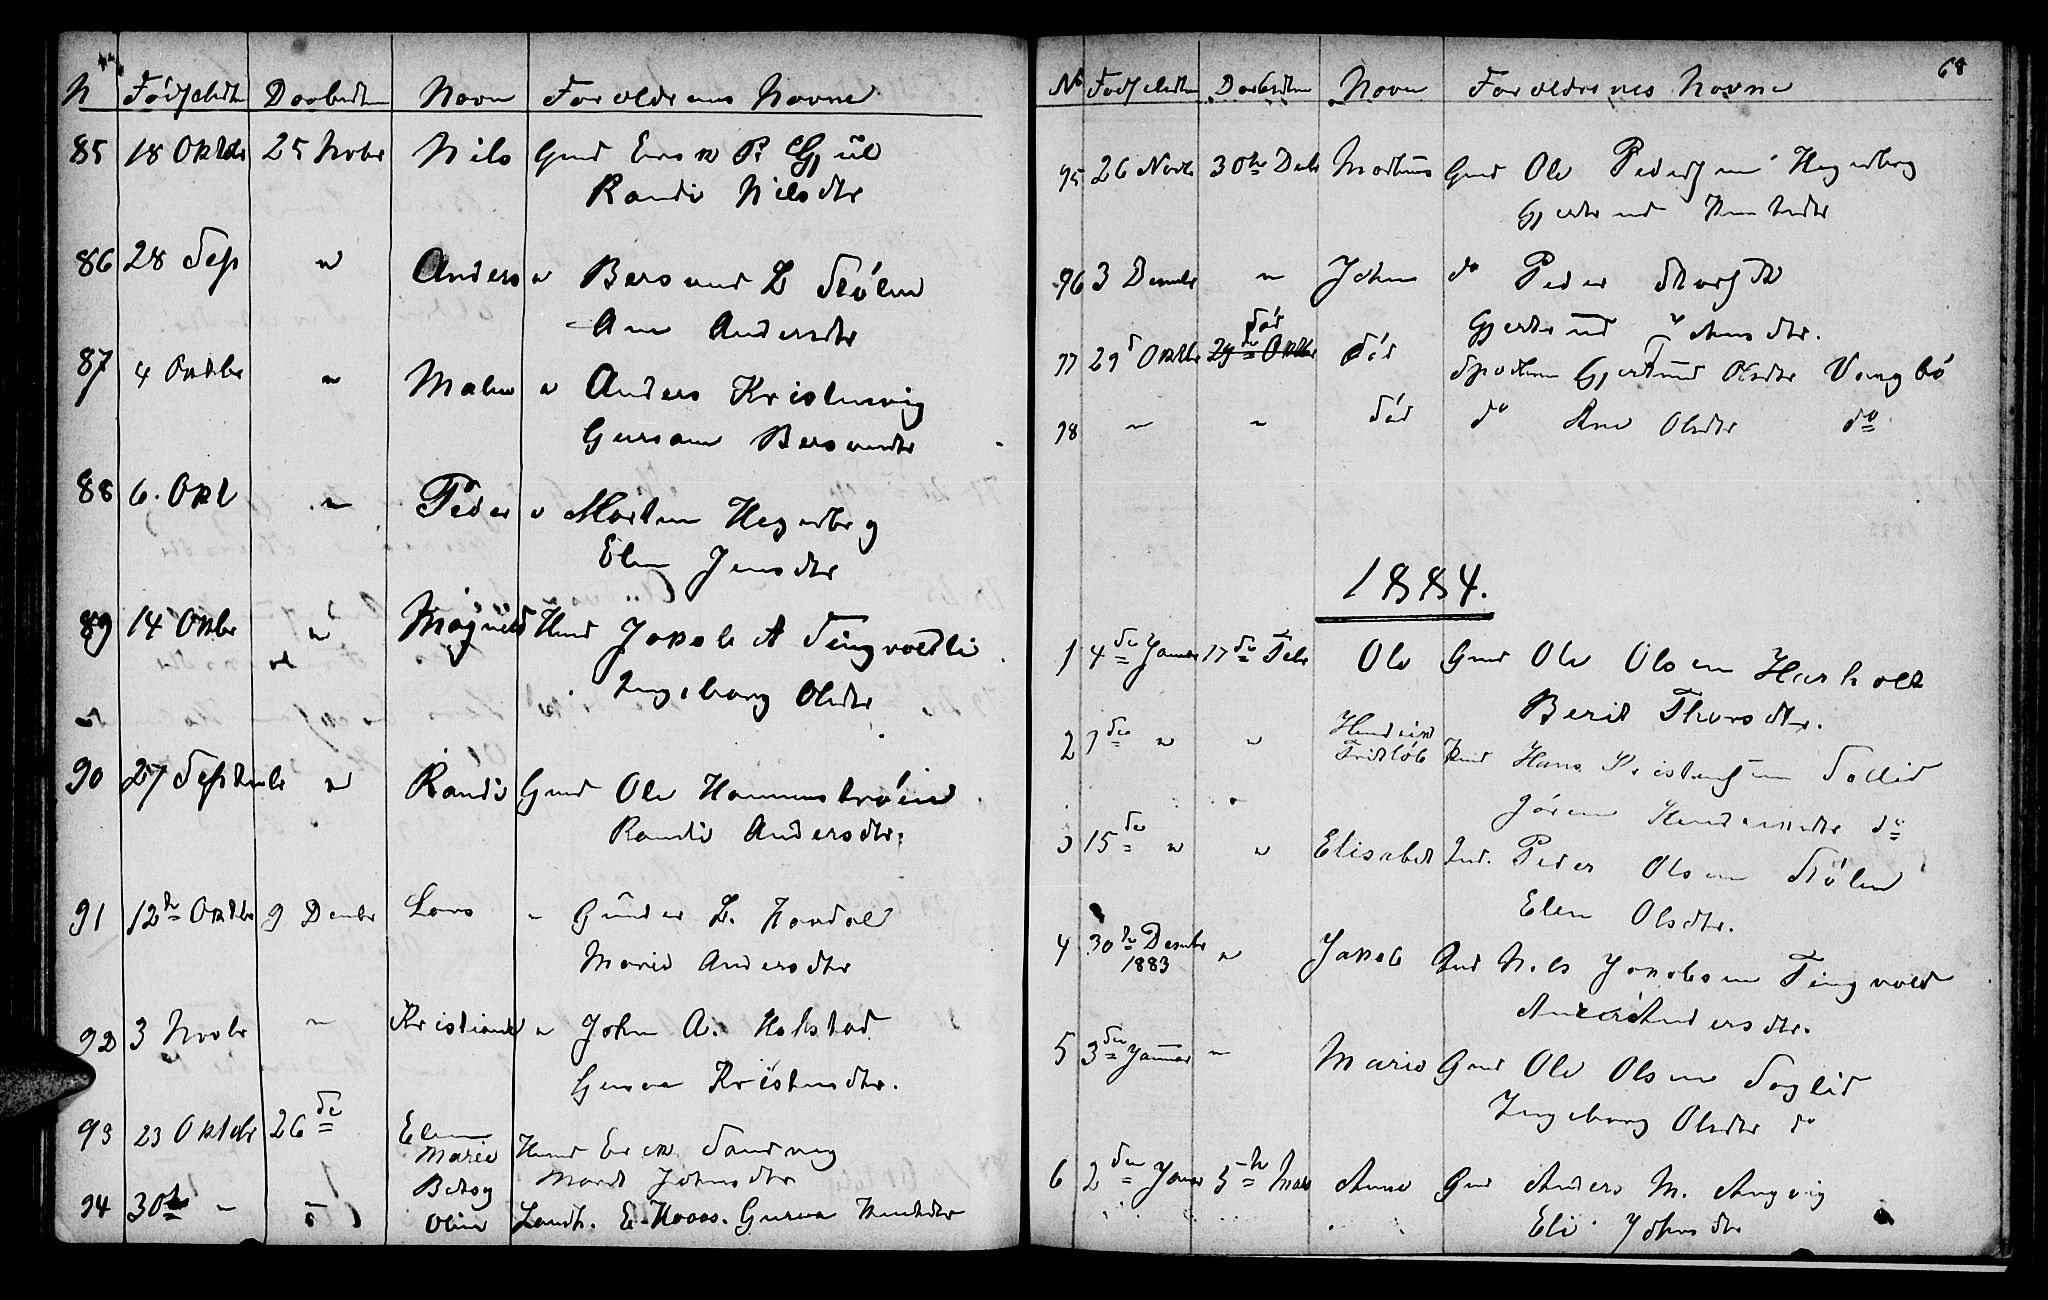 N Fødselsdtm Daabsdtm Navn Forældrenes Navne
85 18 Oktbr 25 Nobr Nils Gmd Erik P. Gjül
Randi Nilsdtr
86 28 Sep " Anders " Bersvend L Stölen
Ane Andersdtr
87 4 Oktbr " Malene " Anders Kristensvig
Guruane Bersvendtr
88 6. Okt " Peder " Morten Hegerberg
Elen Jensdtr
89 14 Oktbr " Magnild Hmd Jakob A Tingvoldli
Ingeborg Olsdtr
90 27 September " Randi Gmd Ole Hammerstrøien
Randi Andersdtr.
91 12te Oktbr 9 Decmbr Lars " Gunder L. Hovdal
Marie Andersdtr
92 3 Novbr " Kristiane " John A. Holstad
Gurua Kristensdtr.
93 23 Oktobr 26de Elen
Marie Hmd Erik Sandvig
Marit Johnsdtr
94 30te " " Betsy
Oline Landh. E. Haas. Gurua Knudsdtr
68
No Fødselsdtm Daabsdtm Navn Forældrenes Navne
95 26 Novb 30te Debr Mathias Gmd Ole Pedersen Hegerberg
Gjertrud Knudsdtr
96 3 Decmbr " John do Peder Storslt
Gjertrud Johnsdtr.
død
97 29d Oktbr 29de Oktbr død Gjertrud Olsdtr Vangbö
98 " " død do Ane Olsdtr do
1884.
1 4de Januar 17de Febr Ole Gmd Ole Olsen Harholt
Berit Thorsdtr.
2 7de " " Hendrik
Fridtlöb Hmd Hans Kristensen Sollid
Jörine Hendriksdtr do
3 15de " " Elisabet Ind. Peder Olsen Stölen
Elen Olsdtr.
4 30te Decmbr " Jakob Gmd Nils Jakobsen Tingvold
1883
Andersdtr.
5 3de Januar " Marie Gmd Ole Olsen Soglid
Ingeborg Olsdtr do
6 2den Januar 5te Mars Anne Gmd Anders M. Angvig
Eli Johnsdtr